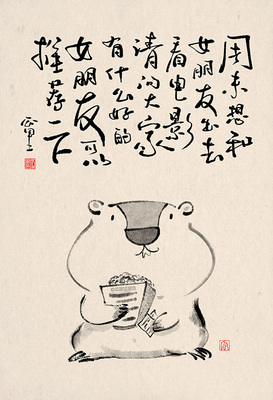 周末想和
女朋友出去
看电影
请问大家
有什么好的
女朋友可以
推荐一下